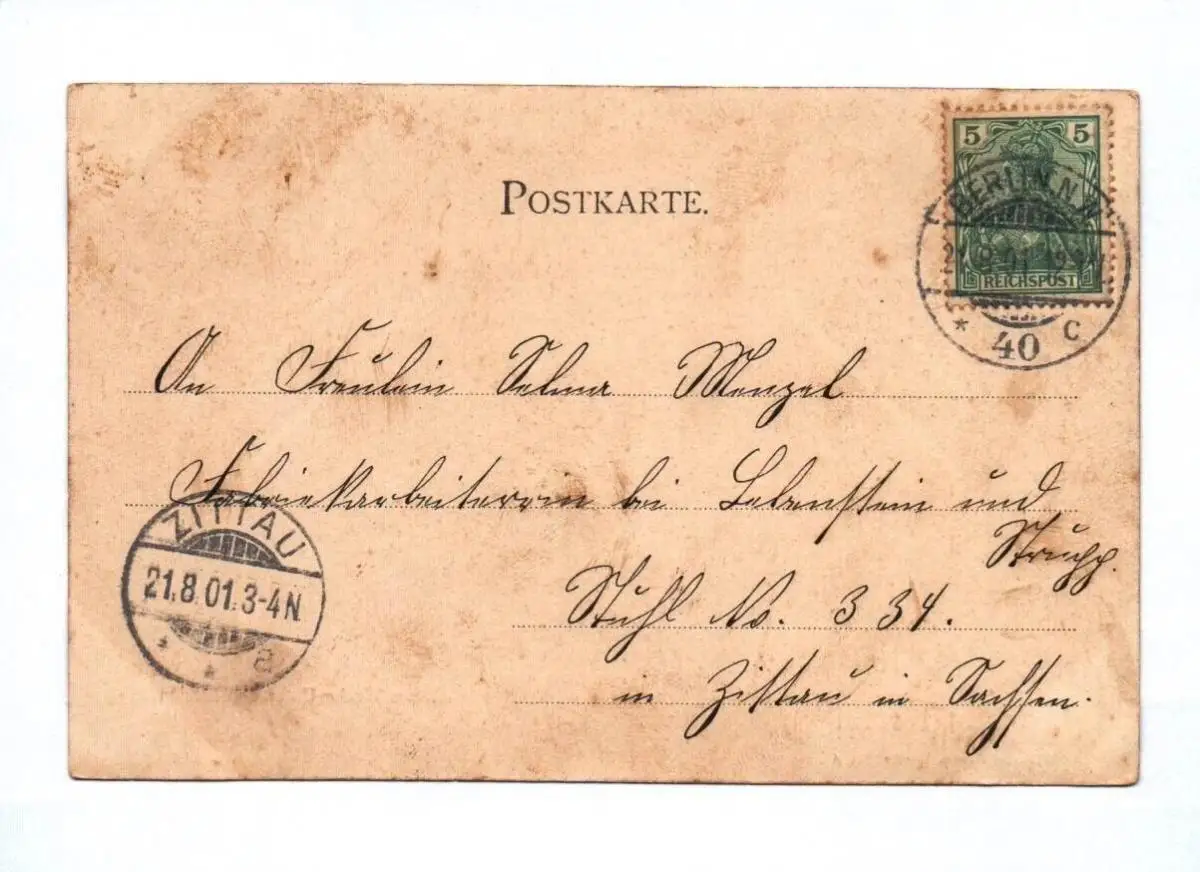 POSTKARTE.
5 5
REICHSPOST
BERLIN N.W.
40 C
An Freulein Selma Menzel
Fabriekarbeiterrin bei Lebenstein und
Strupp.
Stuhl No. 334.
in Zittau in Sachsen.
ZITTAU
21.8.01.3-4N.
a